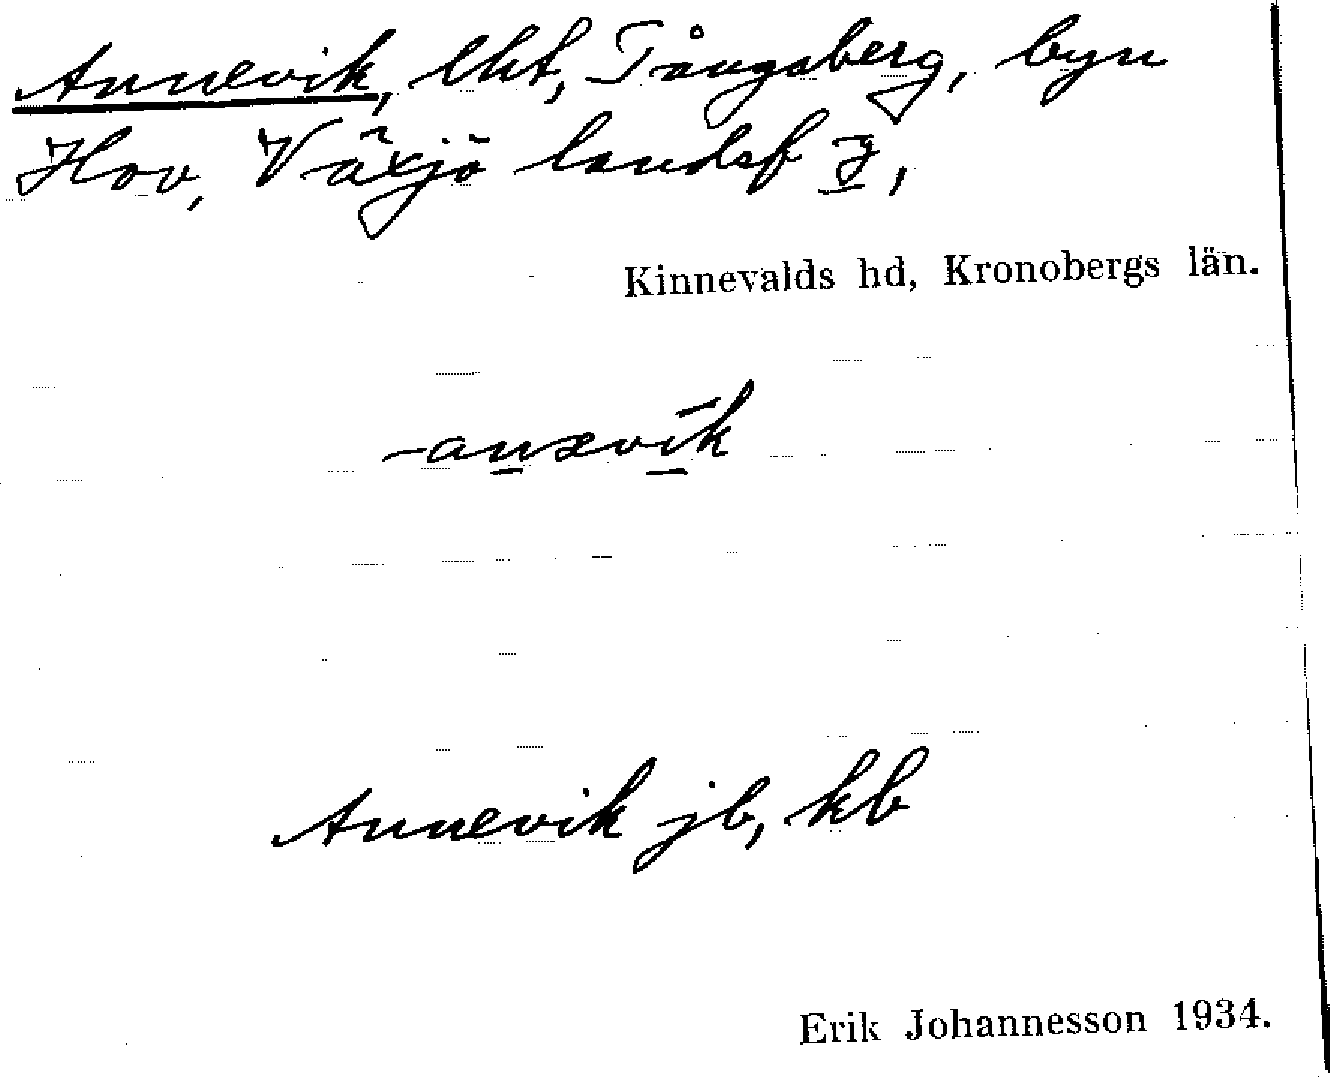 Annevik, lht, Tångsberg, byn
Hov, Växjö landsf
Kinnevalds hd, Kronobergs län.
Annevik jb, kb
Erik Johannesson 1934.